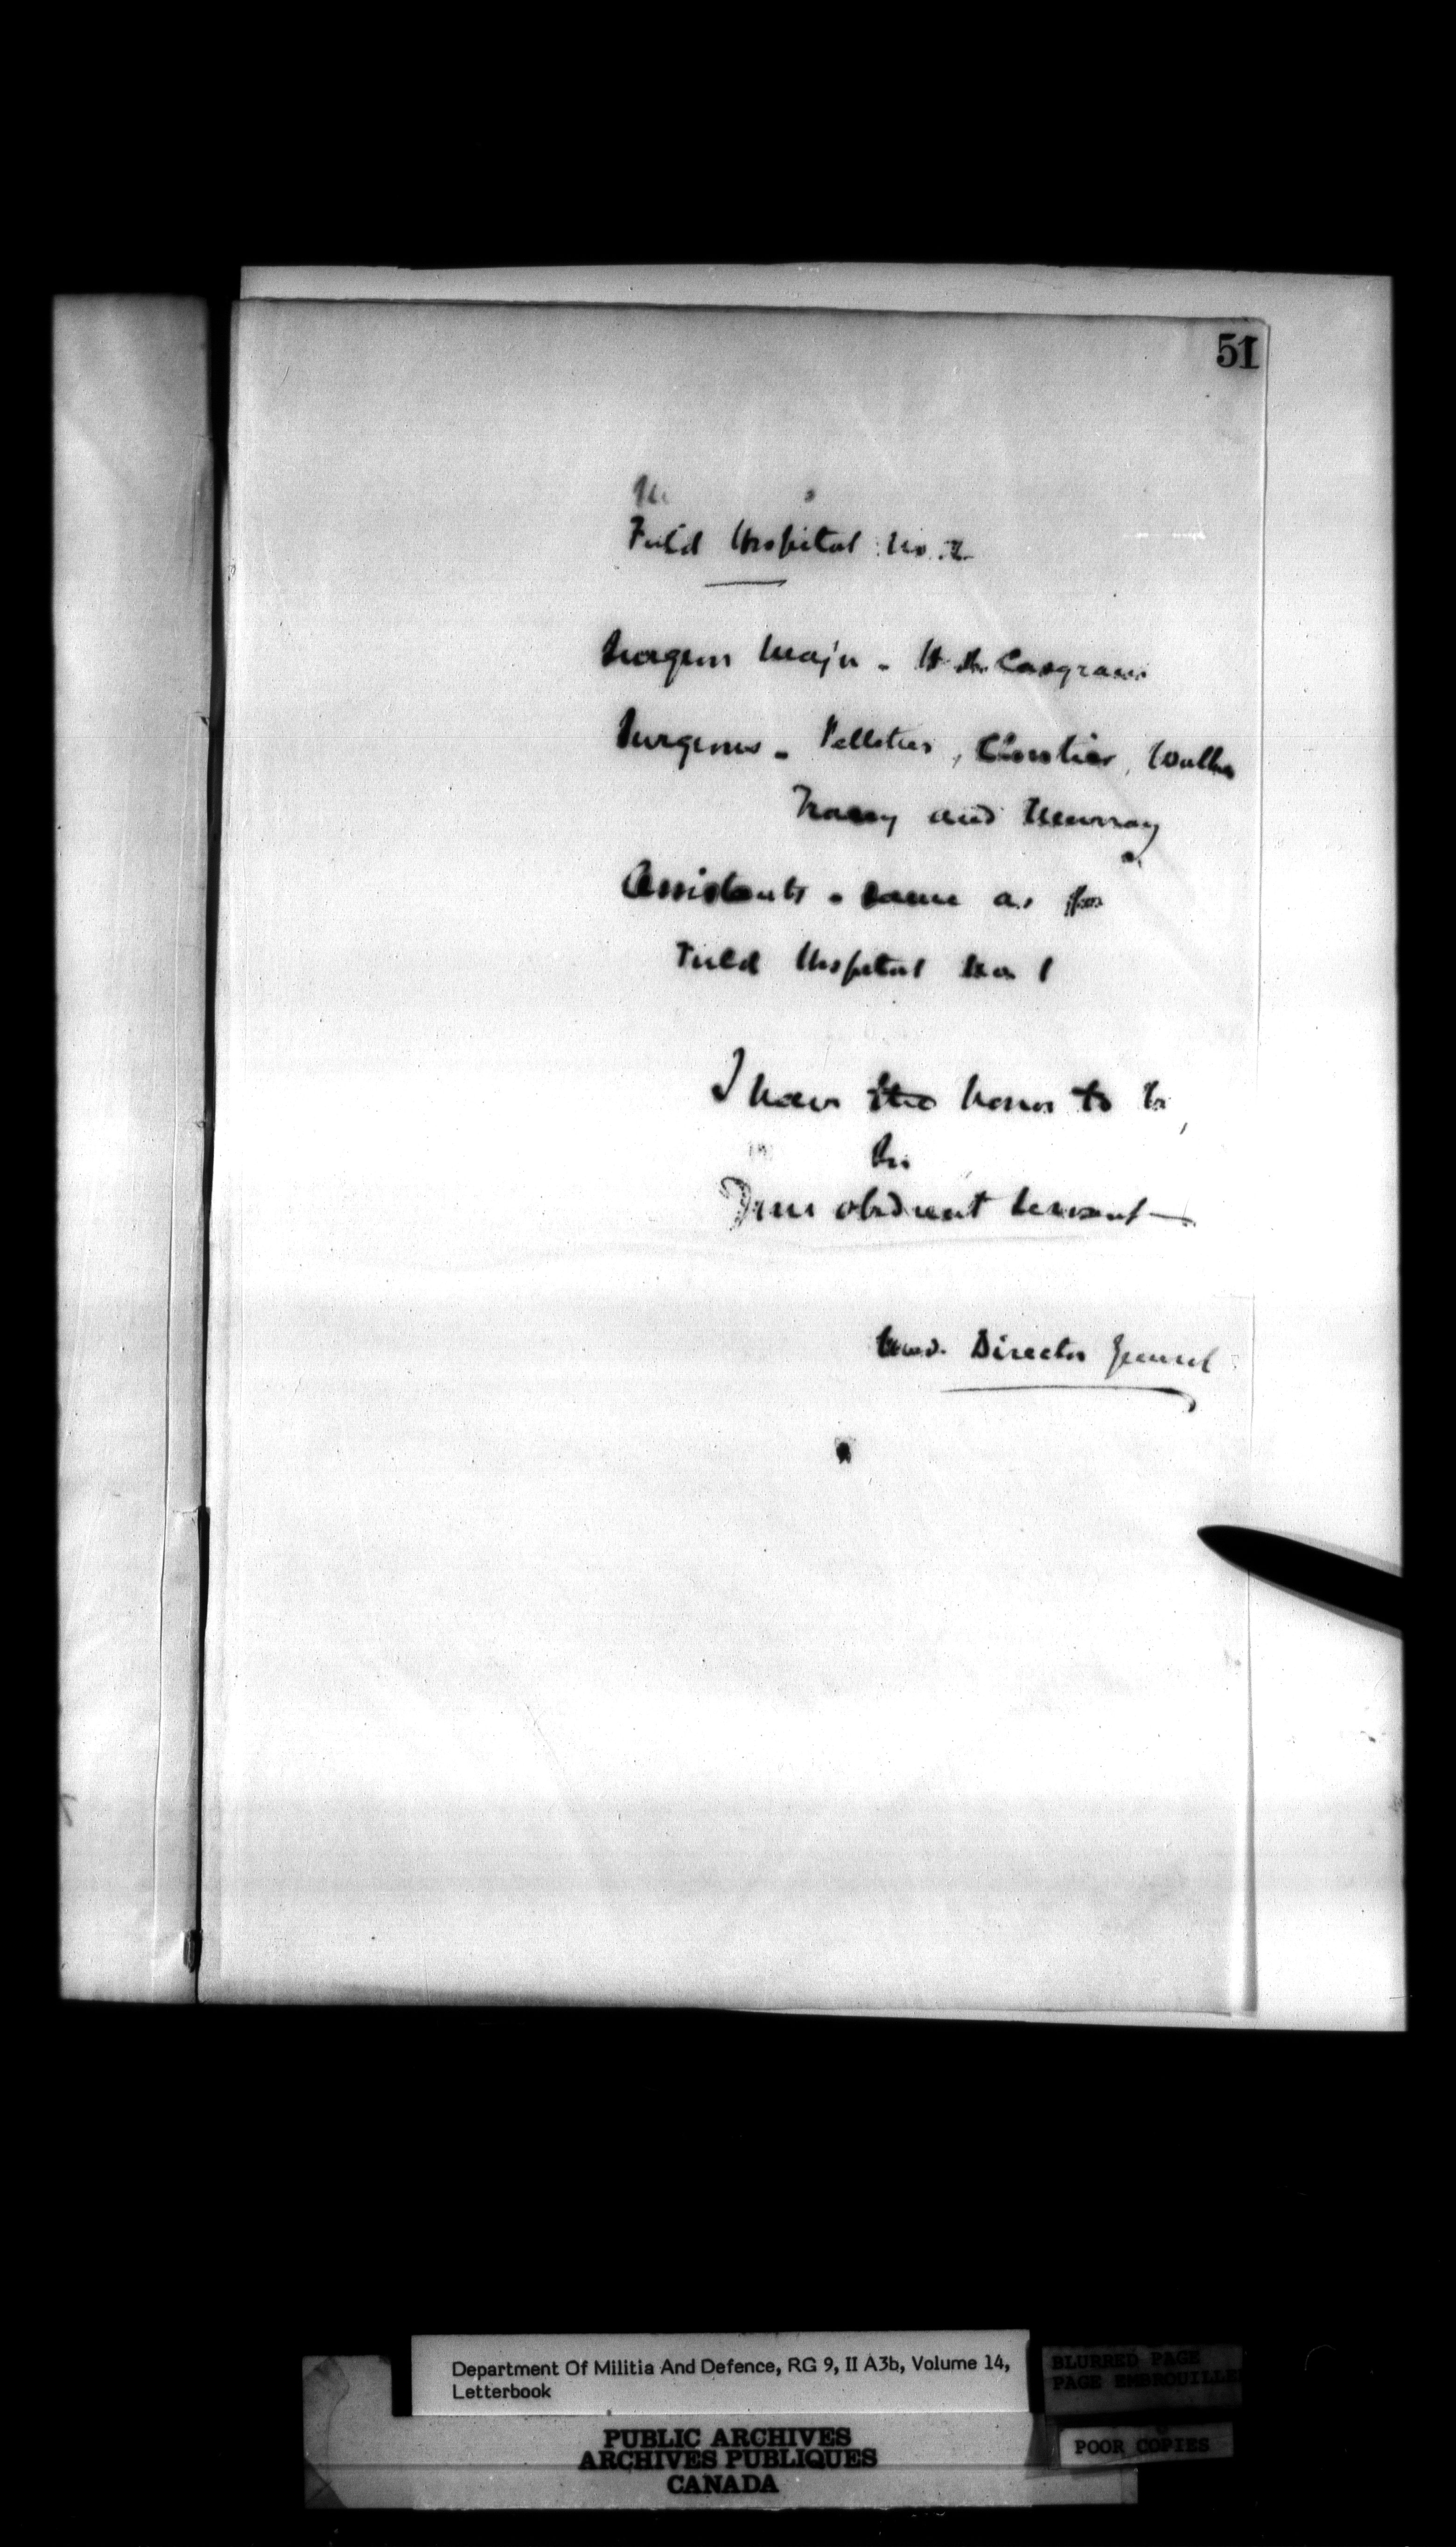 51
Field Hospital No. 2
Surgeon Major - H. R. Casgrain
Surgeons - Pelletier, Cloutier, Walker
Tracey and Murray
Assistants - same as for
Field Hospital No 1
I have the honor to be,
Sir
Your obedient servant
Med. Director General
Department Of Militia And Defence, RG 9, II A3b, Volume 14,
Letterbook
BLURRED PAGE
PAGE EMBROUILLE
PUBLIC ARCHIVES
ARCHIVES PUBLIQUES
CANADA
POOR COPIES